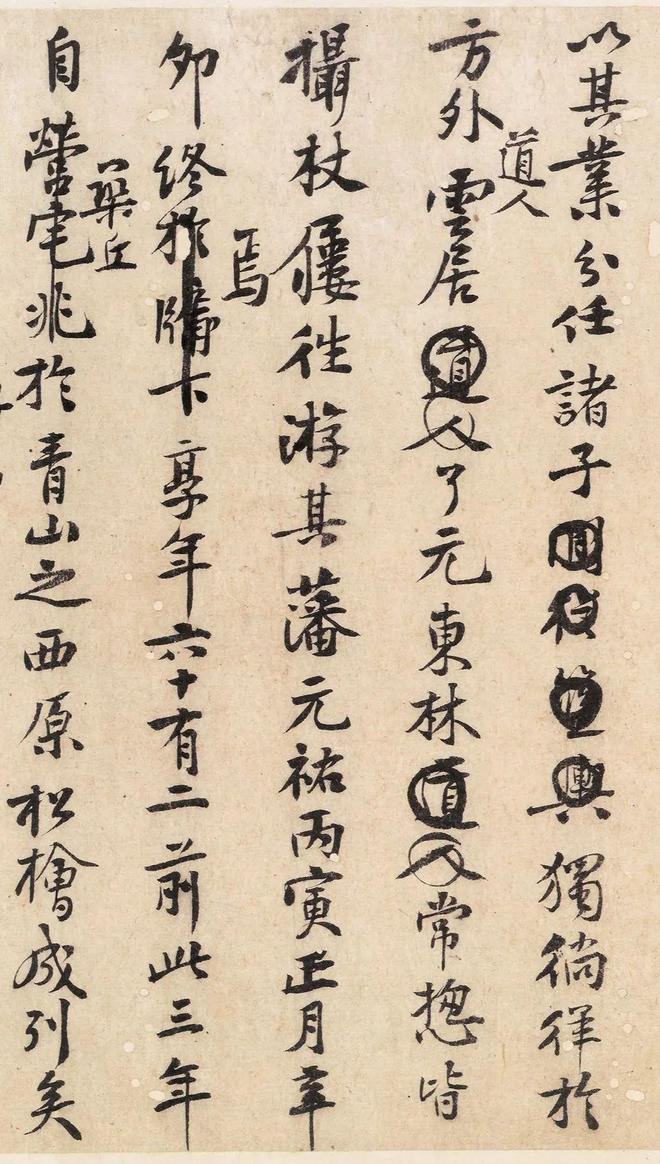 以其業分任諸子獨徜徉於
道人
方外雲居道人了元東林道人常揔皆
攝杖屨往游其藩元祐丙寅正月辛
焉
卯終於牖下享年六十有二前此三年
丘
自營宅兆於青山之西原松檜成列矣